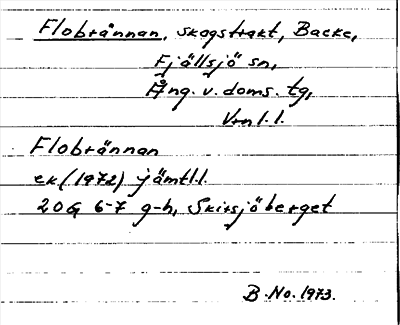 Flobrännan, skogstrakt, Backe,
Fjällsjö sn,
Ång. v. doms. tg,
Vrnl. l.
Flobrännan
ek (1972) jämtl.l.
20G 6-7 g-h, Skirsjöberget
B.No.1973.